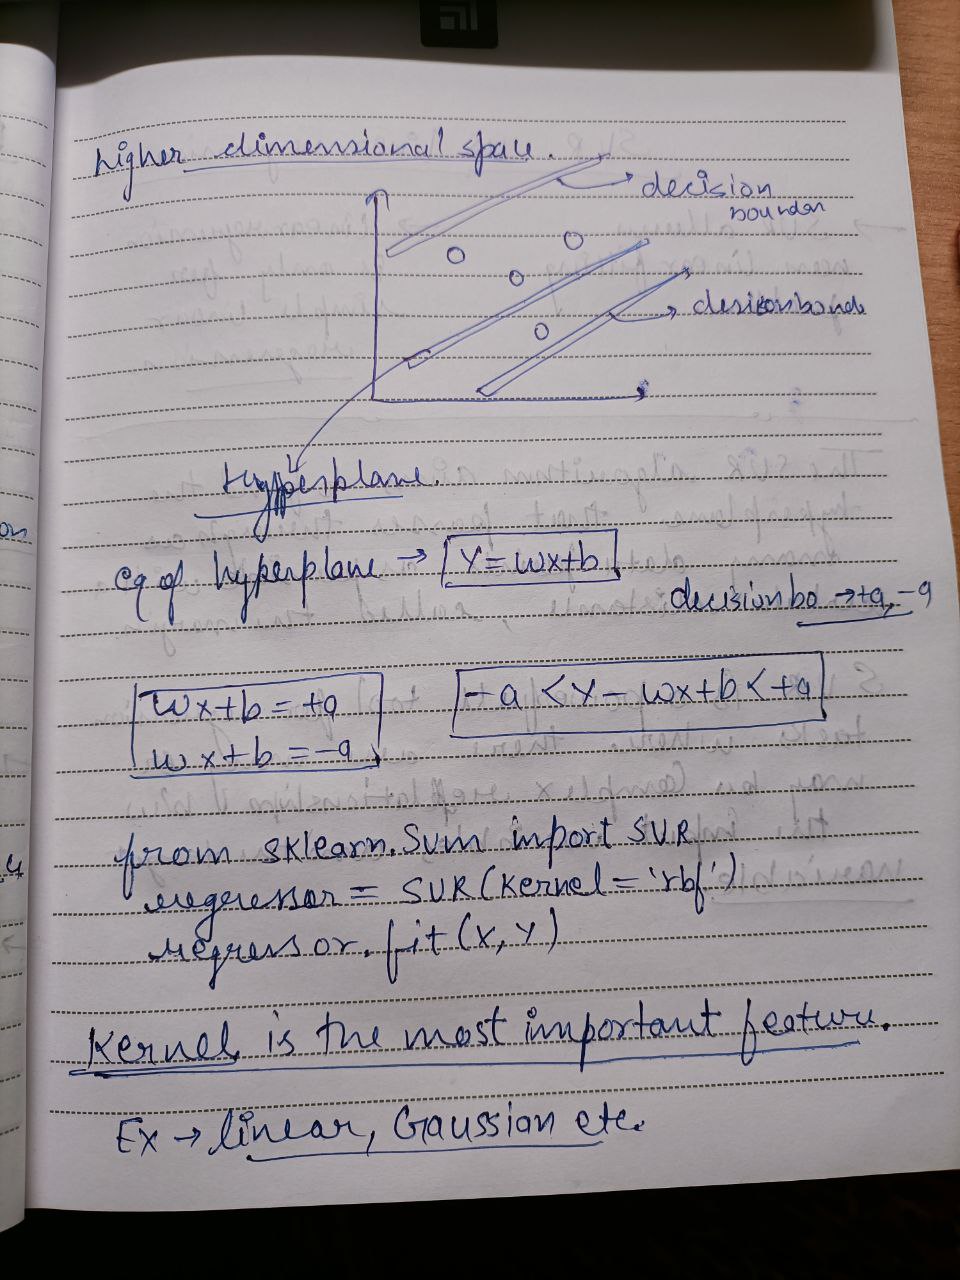 higher dimensional space.
decision
boundar
desisonbonda
Hyperplane.
eq of hyperplane → Y = wx+b
decision bo → +a, -a
wx+b = +a
wx+b = -a
-a < Y - wx+b < +a
from sklearn.svm import SVR
regressor = SVR(kernel = 'rbf')
regressor.fit(x, y)
Kernel is the most important feature.
Ex → linear, Gaussian etc.
on